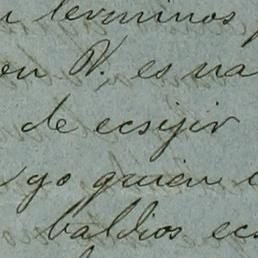 terminos
en V. es na
de ecsijir
yo quien
baldios ecs